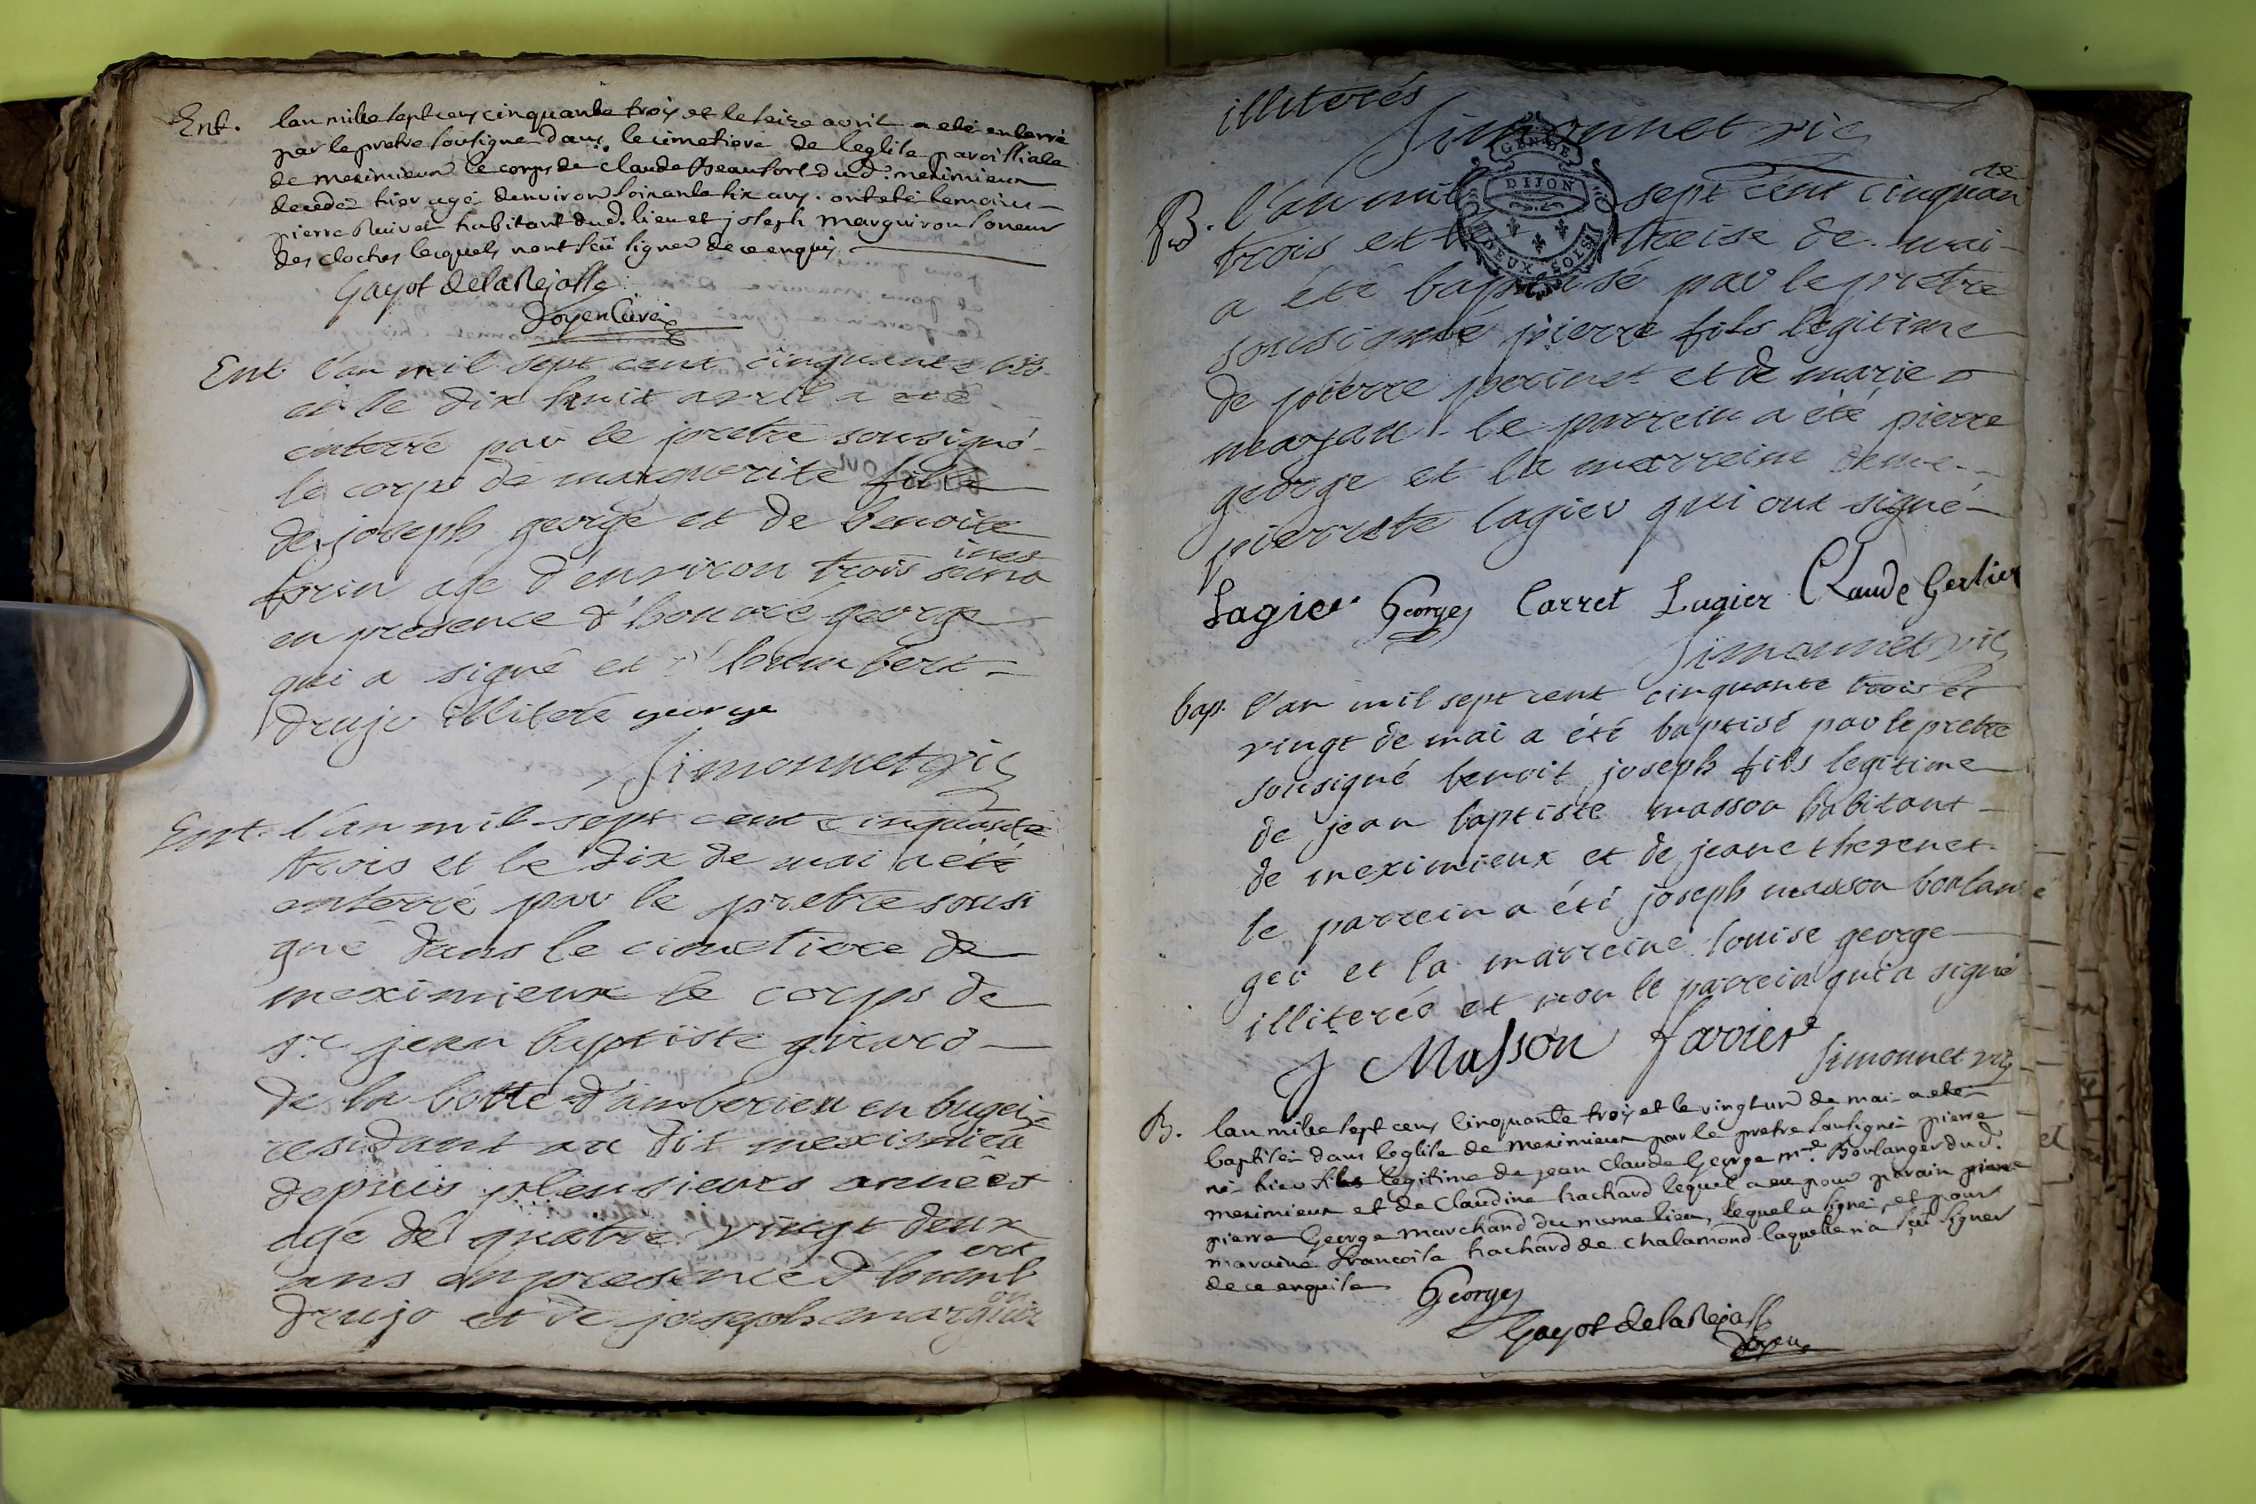 Ent. lan mille sept cens cinquante trois et le seize avril a eté enterré
par le pretre sousigné dans le cimetiere de leglise paroissiale
de meximieux le corps de Claude Beaufort dud. meximieux
decedé hier agé denviron soixante six ans. ont eté temoins
pierre Ruivet habitant dud. lieu et joseph marguiron soneur
des cloches lequels nont sçü signer de ce enquis
Gayot delaRejasse
Doyen Curé
Ent l'an mil sept cent cinquante tros
et le dix huit avril a eté
enterré par le pretre sousigné
le corps de marguerite fille
de joseph george et de benoite
forin age d'environ trois semaines
en presence d'honoré george
qui a signé et d'humbert
drujo illiteré george
Simonnet vic
Ent. l'an mil sept cent cinquante
trois et le dix de mai a été
enterré par le pretre sousi
gné dans le cimetiere de
meximieux le corps de
sr. jean baptiste girard
de la botte d'amberieu en bugei
residant au dit meximieu
depuis pleusieurs années
agé de quatre vingt deux
ans en presence d'humbert
drujo et de joseph marguiron
illiterés
Simonnet vic
GEN DE
DIJON
DEUX SOLS
B. l'an mil sept cent cinquante
trois et le treise de mai
a été baptisé par le pretre
sousigné pierre fils legitime
de pierre perinet et de marie
mazan le parrein a été pierre
george et la marreine
pierrete lagier qui ont signé
Lagier Georges Carret Lugier Claude Gerlier
Simonnet vic
bap. l'an mil sept cent cinquante trois et
vingt de mai a été baptisé par le pretre
sousigné benoit joseph fils legitime
de jean baptiste masson habitant
de meximieux et de jeane thevenet
le parrein a été joseph masson boulan
ger et la marreine louise george
illiterée et non le parrein qui a signé
J Masson farrier
Simonnet vic
B. lan mille sept cens Cinquante trois et le vingt un de mai a eté
baptisé dans leglise de meximieux par le pretre sousigné pierre
né hier fils legitime de jean Claude George md. Boulanger dud.
meximieux et de Claudine hachard lequel a eu pour parain pierre
pierre George marchand du meme lieu, lequel a signé, et pour
maraine francoise hachard de chalamond laquelle n'a sçü signer
de ce enquise
Georges
Gayot delaRejasse
Doyen